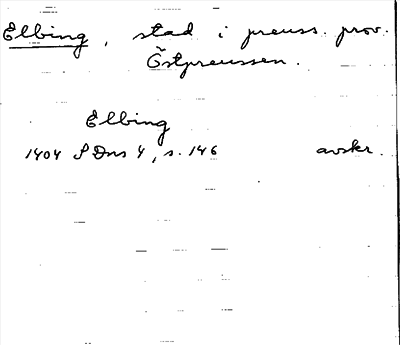 Elbing, stad i preuss. prov.
Östpreussen.
Elbing
1404 SDns 4, s. 146 avskr.